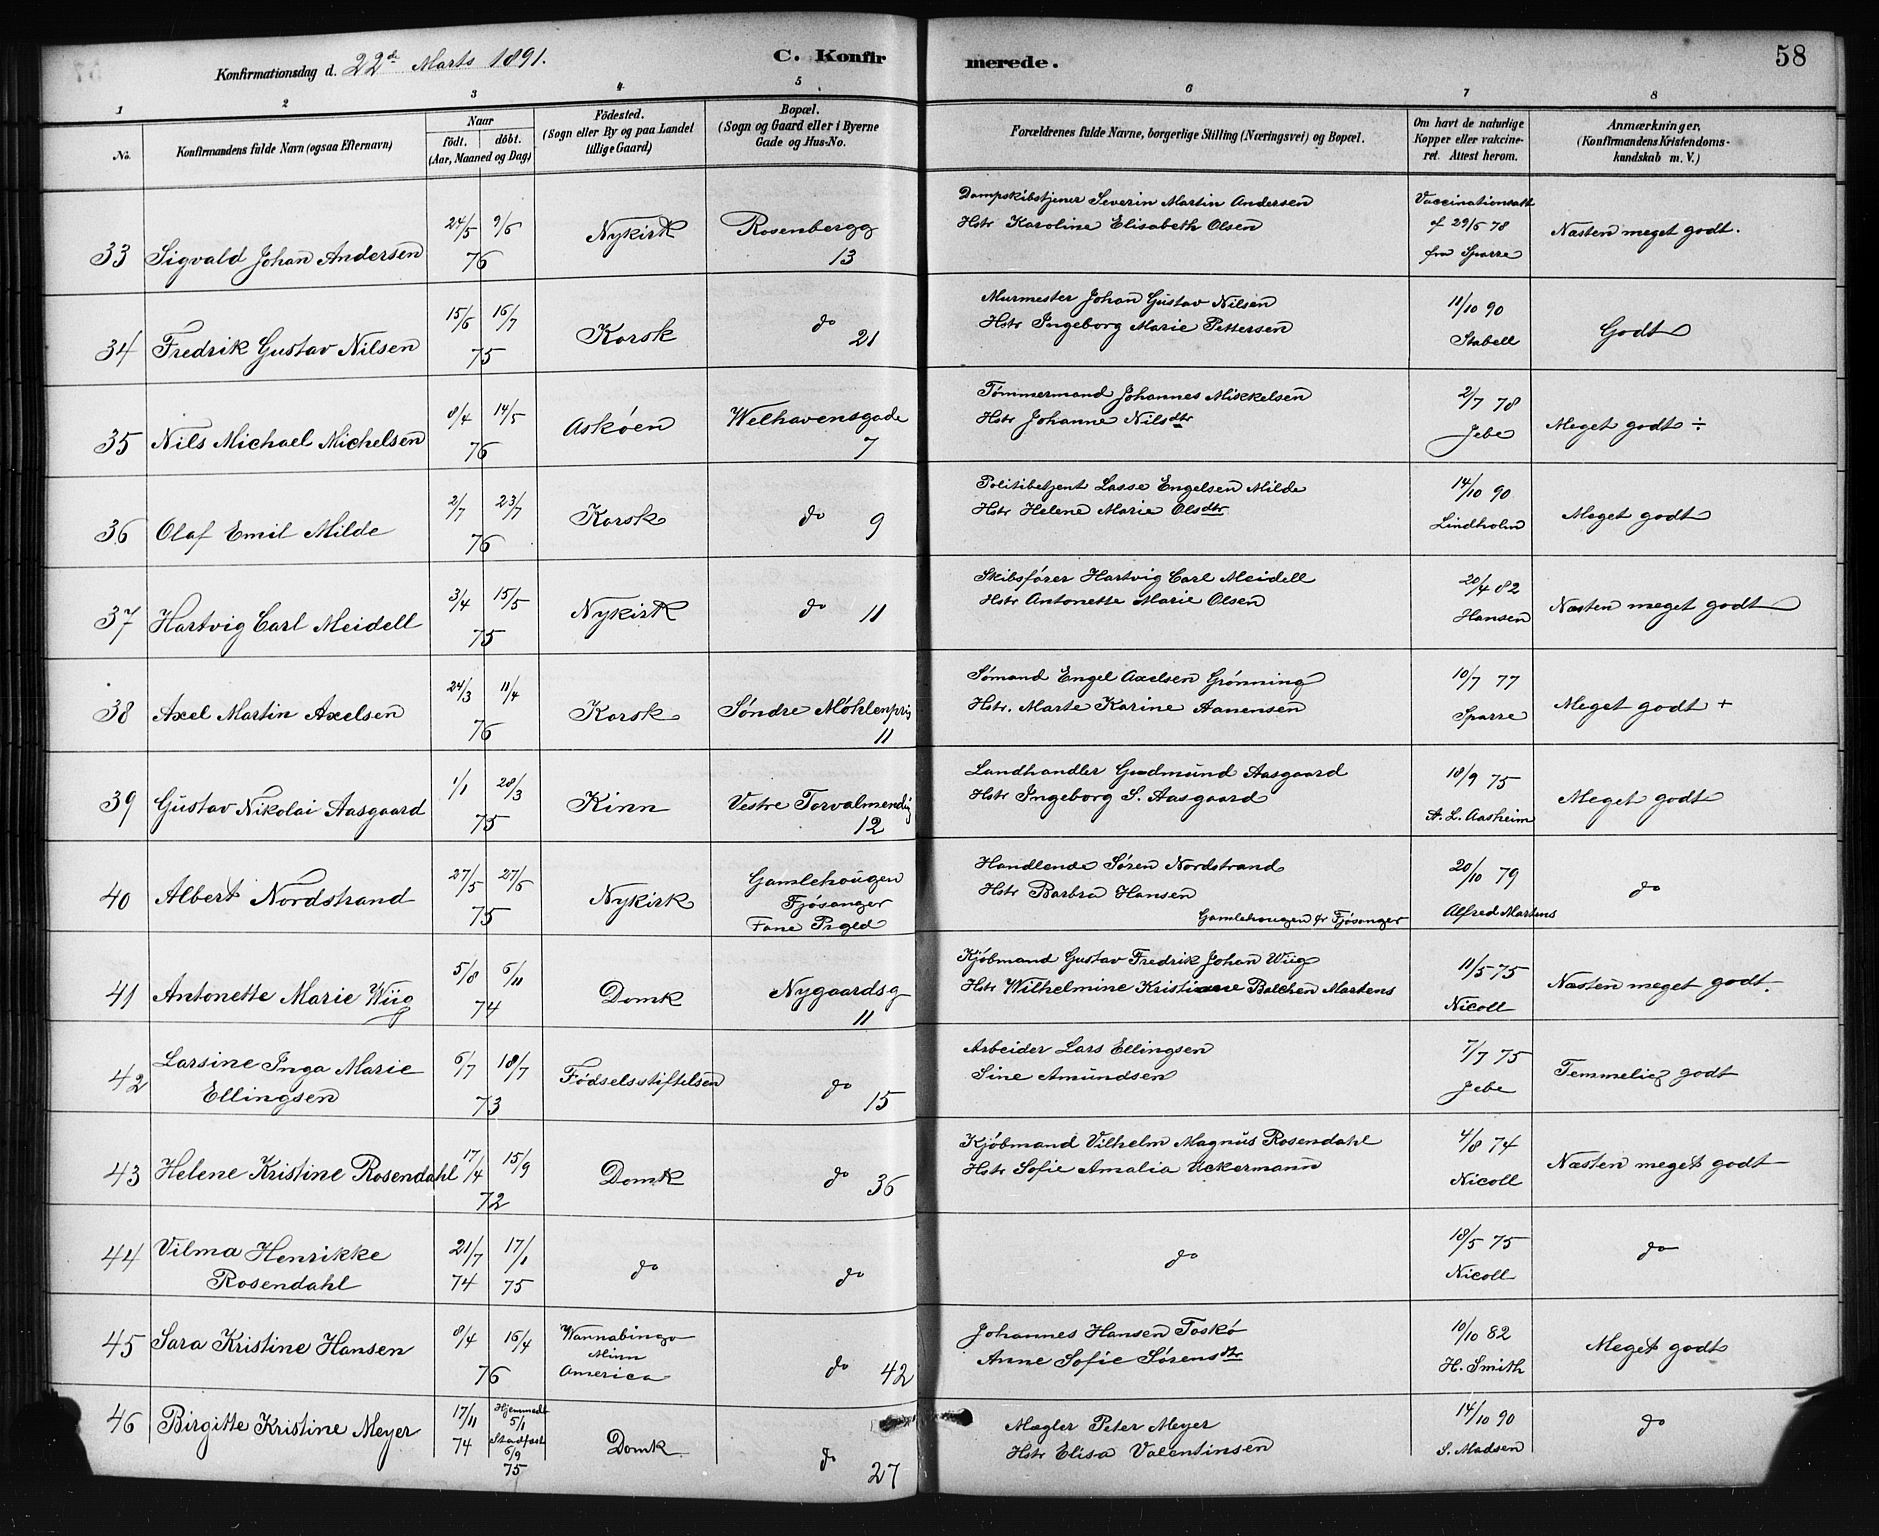 Konfirmationsdag d. 22de Marts 1891. C. Konfirmerede. 58
1 2 3 4 5 6 7 8
No. Konfirmandens fulde Navn (ogsaa Efternavn) Naar födt. döbt. (Aar, Maaned og Dag) Födested. (Sogn eller By og paa Landet tillige Gaard) Bopæl. (Sogn og Gaard eller i Byerne Gade og Hus-No. Forældrenes fulde Navne, borgerlige Stilling (Næringsvei) og Bopæl. Om havt de naturlige Kopper eller vakcineret. Attest herom. Anmærkninger. (Konfirmandens Kristendomskundskab m. V.)
33 Sigvald Johan Andersen 24/5 9/6 76 Nykirk Rosenbergg 13 Dampskibstjener Severin Martin Andersen Hstr Karoline Elisabeth Olsen Vaccinationsatt af 29/6 78 fra Sparre Næsten meget godt.
34 Fredrik Gustav Nilsen 15/6 16/7 75 Korsk do 21 Murmester Johan Gustav Nilsen Hstr Ingeborg Marie Pettersen 11/10 90 Stabell Godt
35 Nils Michael Michelsen 8/4 14/5 76 Askøen Welhavensgade 7 Tømmermand Johannes Mikkelsen Hstr Johanne Nilsdtr 2/7 78 Jebe Meget godt ÷
36 Olaf Emil Milde 2/7 23/7 76 Korsk do 9 Politibetjent Lasse Engelsen Milde Hstr Helene Marie Olsdtr 14/10 90 Lindholm Meget godt
37 Hartvig Carl Meidell 3/4 15/5 75 Nykirk do 11 Skibsfører Hartvig Carl Meidell Hstr Antonette Marie Olsen 20/4 82 Hansen Næsten meget godt
38 Axel Martin Axelsen 24/3 11/4 76 Korsk Søndre Møhlenpris 11 Sømand Engel Axelsen Grønning Hstr. Marte Karine Aanensen 10/7 77 Sparre Meget godt +
39 Gustav Nikolai Aasgaard 1/1 28/3 75 Kinn Vestre Torvalmendg 12 Landhandler Gudmund Aasgaard Hstr Ingeborg S. Aasgaard 18/9 75 A. L. Aasheim Meget godt
40 Albert Nordstrand 27/5 27/6 75 Nykirk Gamlehougen Fjøsanger Fane Prgld Handlende Søren Nordstrand Hstr Barbra Hansen Gamlehougen pr Fjøsanger 20/10 79 Alfred Martens do
41 Antonette Marie Wiig 5/8 6/11 74 Domk Nygaardsg 11 Kjøbmand Gustav Fredrik Johan Wiig Hstr Wilhelmine Kristiane Balchen Martens 11/5 75 Nicoll Næsten meget godt.
42 Larsine Inga Marie Ellingsen 6/7 18/7 73 Fødselsstiftelsen do 15 Arbeider Lars Ellingsen Sine Amundsen 7/7 75 Jebe Temmelig godt
43 Helene Kristine Rosendahl 17/4 15/9 72 Domk do 36 Kjøbmand Vilhelm Magnus Rosendahl Hstr Sofie Amalia Uckermann 4/8 74 Nicoll Næsten meget godt
44 Vilma Henrikke Rosendahl 21/7 74 17/1 75 do do do 18/5 75 Nicoll do
45 Sara Kristine Hansen 8/4 16/4 76 Wannabingo Minn America do 42 Johannes Hansen Toskø Anne Sofie Sørensdtr 10/10 82 H. Smith Meget godt
46 Birgitte Kristine Meyer 17/11 74 Hjemmedt 5/1 Stadfæst 6/9 75 Domk do 27 Mægler Peter Meyer Hstr Elisa Valentinsen 14/10 90 S. Madsen do